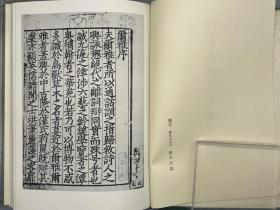 爾雅序
夫爾雅者所以通詁訓之指歸敘詩人之
興詠揔絶代之離詞辯同實而殊號者也
誠九流之津涉六藝之鈐鍵學覽者之潭
奧摛翰者之華苑也若乃可以博物不惑
多識於鳥獸草木之名者莫近於爾雅爾
雅者蓋興於中古隆於漢氏豹鼠既辯其
業亦顯英儒贍聞之士洪筆麗藻之客靡